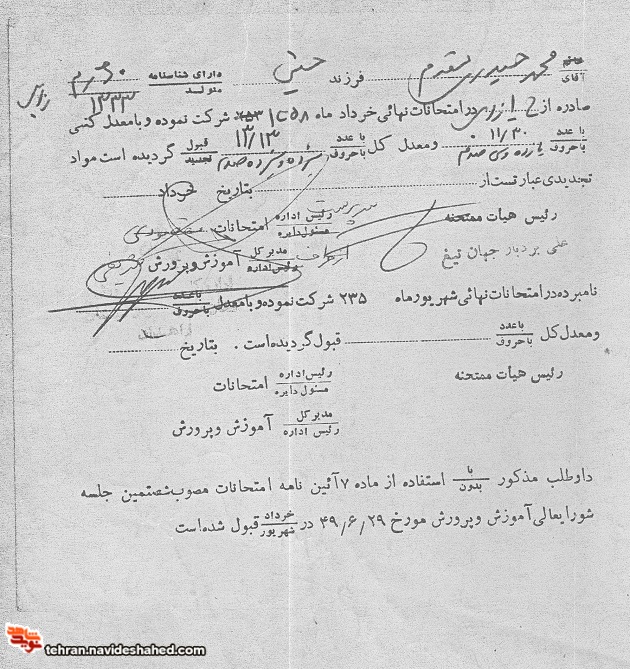 خانم
آقای محمد حیدری مقدم فرزند حبشی دارای شناسنامه ۶۰ متولد ۱۳۳۳
صادره از در امتحانات نهائی خرداد ماه ۱۳۵۸ شرکت نموده و با معدل کتبی
با عدد ۱۱/۳۰ با حروف یازده و سی صدم و معدل کل با عدد ۱۳/۱۳ با حروف سیزده و سیزده صدم قبول تجدید گردیده است مواد
تجدیدی عبارتست از بتاریخ خرداد
رئیس هیأت ممتحنه رئیس اداره مسئول دایره امتحانات سرپرست
علی بردبار جهان تیغ مدیر کل رئیس اداره آموزش و پرورش از طرف شریفی
نامبرده در امتحانات نهائی شهریور ماه ۲۳۵ شرکت نموده و با معدل با عدد با حروف
و معدل کل با عدد با حروف قبول گردیده است . بتاریخ
رئیس هیأت ممتحنه رئیس اداره مسئول دایره امتحانات
مدیر کل رئیس اداره آموزش و پرورش
داوطلب مذکور با بدون استفاده از ماده ۷ آئین نامه امتحانات مصوب شصتمین جلسه
شورایعالی آموزش و پرورش مورخ ۴۹/۶/۲۹ در خرداد شهریور قبول شده است
نوید شاهد
tehran.navideshahed.com